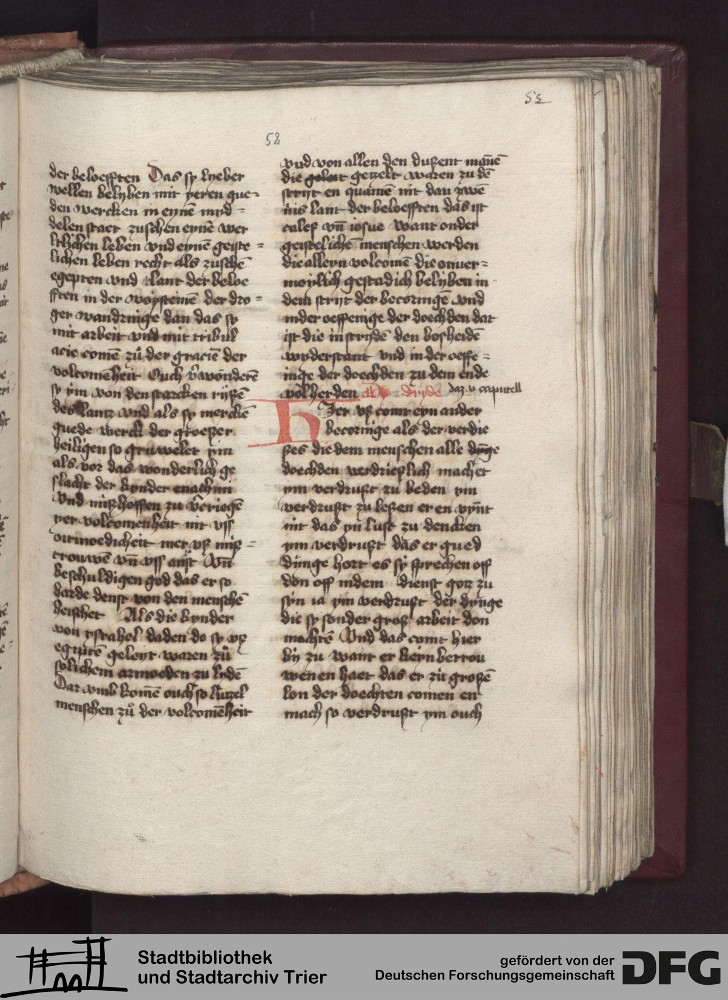 52
52
der beloefften Das sy lyeber
wellen belyben mit yeren gue-
den wercken in eynē myd-
delen staet zuschen eynē wer
ltlichen leben vnd eynē geiste-
lichen leben recht als zuschē
egepten vnd dlant der beloe
fften in der woysteinē der dro-
ger wandringe dan das sy
mit arbeit vnd mit tribul
acie comē zů der gracien der
volcomēheit Ouch v̄wonderē
sy ym von den starcken rysē
des lantz vnd als sy mercken
guede werck der groeßer
heiligen so gruwelet ym
als vor das wonderlich ge
slacht der kynder enachim
vnd mißhoffen zu v̄criegē
yer volcomenheit nit vss
oitmoedicheit mer vß miß-
trouwen vn̄ vss anst Vn̄
beschuldigen god das er so
harde denst von den menschē
heischet Als die kynder
von ysrahel daden do sy vß
egiptē geleyt waren zů
solichem armoeden zu lydē
Dar vmb komē ouch so lůtzel
menschen zů der volcomēheit
vnd von allen den dusent manē
die getzelt waren zu dē
stryt en quamē nit dan zwē
ins lant der beloefften das ist
calef vn̄ iosue want onder
geistelichē menschen werden
die alleyn volcomē die onuer-
moitlich gestadich belyben in
dem stryt der becoringe vnd
in der oeffenige der doechden dat
ist die instryde den bosheidē
wyderstant vnd in der oeffe-
inge der doechden zu dem ende
volherden dryde Daz v capittell
Hier vß comt eyn ander
becoringe als der verdie
ßes die dem menschen alle dynge
doechden verdrießlich machet
ym verdrußt zu beden ym
verdrußt zu leßen er en vynt
nit das yn lust zu dencken
ym verdrußt das er gued
dynge hort es sy sprechen off
don off indem dienst gotz zu
syn ia ym verdrußt der dynge
die sy sonder groß arbeit don
machtē Vnd das comt hier
by zu want er keyn betrou
wenen haet das er zů großē
lon der doechten comen en
mach so verdrußt ym ouch
Stadtbibliothek
und Stadtarchiv Trier
gefördert von der
Deutschen Forschungsgemeinschaft
DFG